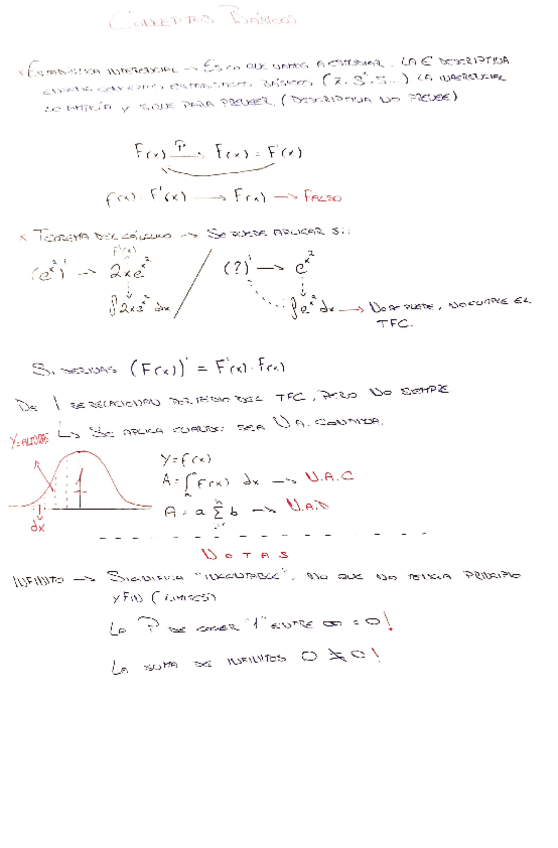 CONCEPTOS BÁSICOS
x ESTADÍSTICA INFERENCIAL → ES LO QUE VAMOS A ESTUDIAR. LA E DESCRIPTIVA
BÁSICOS, (Z, S², S...) LA INFERENCIAL
LO AMPLÍA Y SIRVE PARA PREVER. (DESCRIPTIVA NO PREVEE)
F(x) →P F(x) = F'(x)
f(x) · F'(x) → F(x) → FALSO
x TEOREMA DEL CÁLCULO → SE PUEDE APLICAR SI:
F'(x)
(e^x²)' → 2xe^x² / (?)' → e^x²
∫2xe^x² dx ∫e^x² dx → NO SE PUEDE, NO CUMPLE EL
TFC.
SI DERIVAS (F(x))' = F'(x) · f(x)
DE SE RELACIONAN POR MEDIO DEL TFC, PERO NO SIEMPRE
Y=ALTURAS ↳ SE APLICA CUANDO SEA V.A. CONTINUA.
Y=f(x)
A=∫F(x) dx → V.A.C
A = a Σ b → V.A.D
dx
NOTAS
INFINITO → SIGNIFICA "INCONTABLE", NO QUE NO TENGA PRINCIPIO
Y FIN (LÍMITES)
LA P DE COGER "1" ENTRE ∞ = 0!
LA SUMA DE INFINITOS 0 ≠ 0!